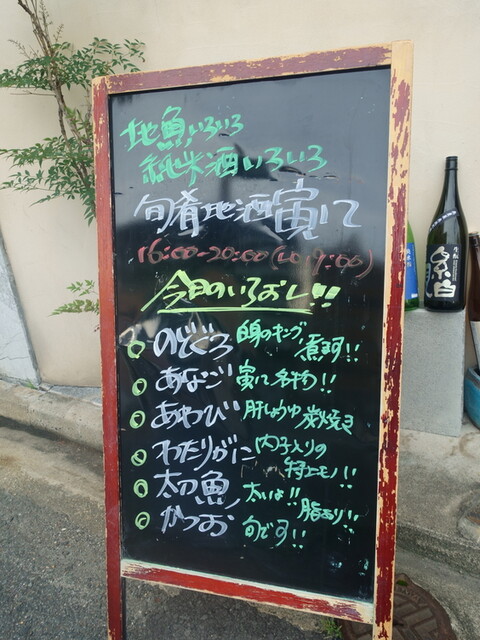 地魚いろいろ
純米酒いろいろ
旬肴地酒寅にて
16:00-20:00(LO 19:00)
今日のいちおし!!
のどぐろ 白身のキング、煮付!!
あなご 寅にて名物!!
あわび 肝しょうゆ 炭焼き
わたりがに 内子入りの特上モノ!!
太刀魚 太いよ!! 脂あり!!
かつお 旬です!!